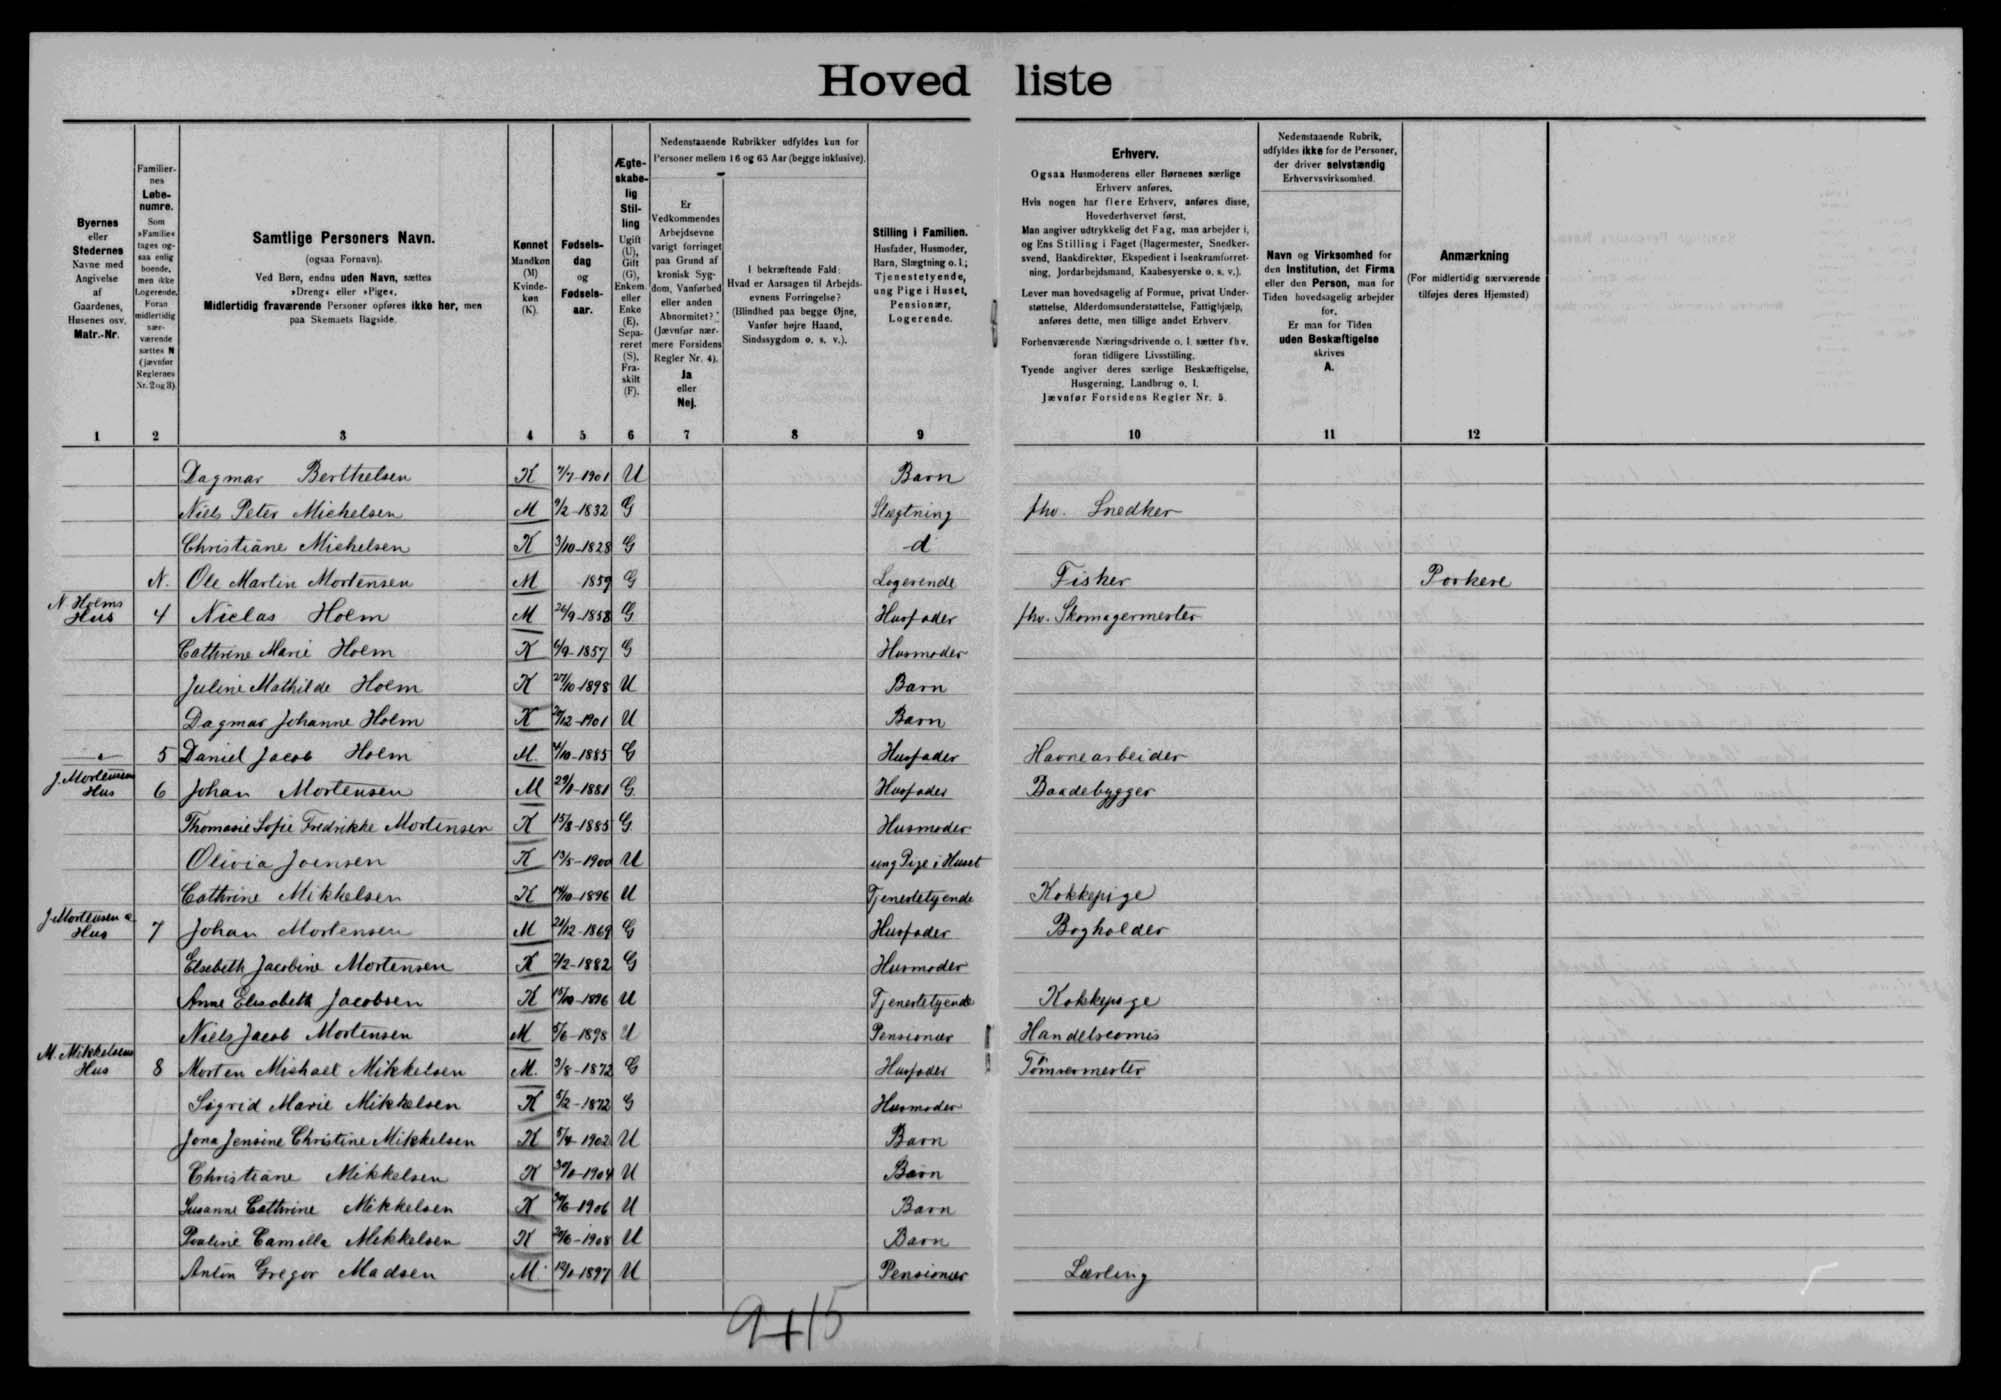 Hovedliste
Byernes
eller
Stedernes
Navne med
Angivelse
af
Gaardenes,
Husenes osv.
Matr.-Nr.
Familier-
nes
Løbe-
numre.
Som
»Familie«
tages og-
saa enlig
boende,
men ikke
Logerende.
Foran
midlertidig
nær-
værende
sættes N
(jævnfør
Reglernes
Nr. 2 og 3).
Samtlige Personers Navn.
(ogsaa Fornavn).
Ved Børn, endnu uden Navn, sættes
»Dreng« eller »Pige«.
Midlertidig fraværende Personer opføres ikke her, men
paa Skemaets Bagside.
Kønnet
Mandkøn
(M)
Kvinde-
køn
(K).
Fødsels-
dag
og
Fødsels-
aar.
Ægte-
skabe-
lig
Stil-
ling
Ugift
(U),
Gift
(G),
Enkem.
eller
Enke
(E),
Sepa-
reret
(S).
Fra-
skilt
(F).
Nedenstaaende Rubrikker udfyldes kun for
Personer mellem 16 og 65 Aar (begge inklusive).
Er
Vedkommendes
Arbejdsevne
varigt forringet
paa Grund af
kronisk Syg-
dom, Vanførhed
eller anden
Abnormitet?
(Jævnfør nær-
mere Forsidens
Regler Nr. 4).
Ja
eller
Nej.
I bekræftende Fald:
Hvad er Aarsagen til Arbejds-
evnens Forringelse?
(Blindhed paa begge Øjne,
Vanfør højre Haand,
Sindssygdom o. s. v.).
Stilling i Familien.
Husfader, Husmoder,
Barn, Slægtning o. l.;
Tjenestetyende,
ung Pige i Huset,
Pensionær,
Logerende.
Erhverv.
Ogsaa Husmoderens eller Børnenes særlige
Erhverv anføres.
Hvis nogen har flere Erhverv, anføres disse,
Hovederhvervet først.
Man angiver udtrykkelig det Fag, man arbejder i,
og Ens Stilling i Faget (Bagermester, Snedker-
svend, Bankdirektør, Ekspedient i Isenkramforret-
ning, Jordarbejdsmand, Kaabesyerske o. s. v.).
Lever man hovedsagelig af Formue, privat Under-
støttelse, Alderdomsunderstøttelse, Fattighjælp,
anføres dette, men tillige andet Erhverv.
Forhenværende Næringsdrivende o. l. sætter fhv.
foran tidligere Livsstilling.
Tyende angiver deres særlige Beskæftigelse,
Husgerning, Landbrug o. l.
Jævnfør Forsidens Regler Nr. 5.
Nedenstaaende Rubrik,
udfyldes ikke for de Personer,
der driver selvstændig
Erhvervsvirksomhed.
Navn og Virksomhed for
den Institution, det Firma
eller den Person, man for
Tiden hovedsagelig arbejder
for.
Er man for Tiden
uden Beskæftigelse
skrives
A.
Anmærkning
(For midlertidig nærværende
tilføjes deres Hjemsted)
1 2 3 4 5 6 7 8 9 10 11 12
Dagmar Berthelsen K 7/7-1901 U Barn
Niels Peter Michelsen M 9/2-1832 G Slægtning fhv. Snedker
Christiane Michelsen K 3/10-1828 G -d
N. Ole Martin Mortensen M 1859 G Logerende Fisker Porkere
N Holms
Hus 4 Niclas Holm M 26/9-1858 G Husfader fhv. Skomagermester
Cathrine Marie Holm K 6/9-1857 G Husmoder
Juline Mathilde Holm K 27/10-1898 U Barn
Dagmar Johanne Holm K /12-1901 U Barn
5 Daniel Jacob Holm M. 4/10-1885 G Husfader Havnearbeider
J. Mortensens
Hus 6 Johan Mortensen M 29/1-1881 G Husfader Baadebygger
Thomasie Sofie Fredrikke Mortensen K 15/8-1885 G Husmoder
Olivia Joensen K 13/5-1900 U ung Pige i Huset
Cathrine Mikkelsen K 14/10-1896 U Tjenestetyende Kokkepige
J Mortensens
Hus 7 Johan Mortensen M 21/12-1869 G Husfader Bogholder
Elsebeth Jacobine Mortensen K 2/2-1882 G Husmoder
Anne Elisabeth Jacobsen K 15/10-1896 U Tjenestetyende Kokkepige
Niels Jacob Mortensen M 5/6-1898 U Pensionær Handelscomis
M. Mikkelsens
Hus 8 Morten Michael Mikkelsen M. 3/8-1872 G Husfader Tømrermester
Sigrid Marie Mikkelsen K 5/2-1872 G Husmoder
Jona Jensine Christine Mikkelsen K 5/4-1902 U Barn
Christiane Mikkelsen K 30/1-1904 U Barn
Susanne Cathrine Mikkelsen K /6-1906 U Barn
Pouline Camilla Mikkelsen K 24/6-1908 U Barn
Anton Gregor Madsen M 12/1-1897 U Pensionær Lærling
9+15